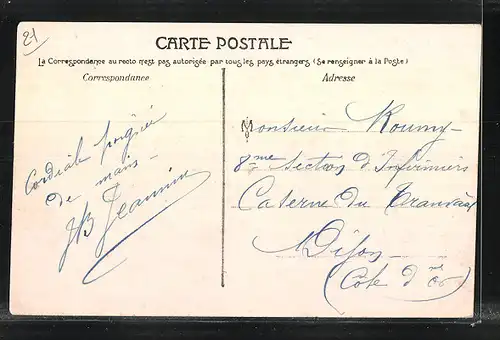 21
CARTE POSTALE
La Correspondance au recto n'est pas autorisée par tous les pays étrangers (Se renseigner à la Poste)
Correspondance
Adresse
Cordiale poignée
de mains
JB Jeannin
Monsieur Roumy
8me Section d'Infirmiers
Caserne du
Dijon
(Côte d'or)